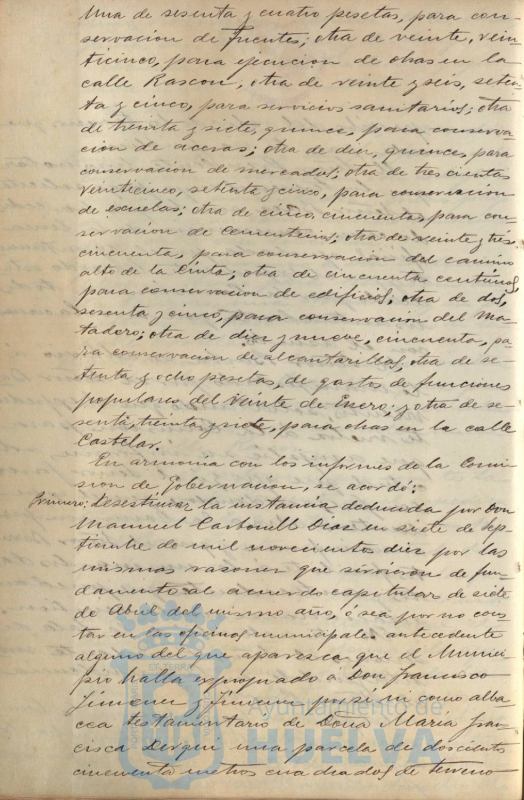 Una de sesenta y cuatro pesetas, para con-
servacion de Fuentes; otra de veinte, vein-
ticinco, para ejecucion de obras en la
calle Rascon, otra de veinte y seis, seten-
ta y cinco, para servicios sanitarios; otra
de treinta y siete, quince, para conserva-
cion de aceras; otra de diez, quince, para
conservacion de mercados; otra de trescientas
veinticinco, setenta y cinco, para conservacion
de escuelas; otra de cinco, cincuenta, para con-
servacion de Cementerios; otra de veinte y tres,
cincuenta, para conservacion del camino
alto de la Cinta; otra de cincuenta centimos,
para conservacion de edificios; otra de dos,
sesenta y cinco, para conservacion del Ma-
tadero; otra de diez y nueve, cincuenta, pa-
ra conservacion de alcantarillas; otra de se-
tenta y ocho pesetas, de gastos de funciones
populares del Veinte de Enero; y otra de se-
senta, treinta y siete, para obras en la calle
Castelar.
En armonia con los informes de la Comi-
sion de Gobernacion, se acordó:
Primero: Desestimar la instancia deducida por Don
Manuel Carbonell Diaz en siete de Sep-
tiembre de mil novecientos diez por las
mismas razones que sirvieron de fun-
damento al acuerdo capitular de siete
de Abril del mismo año, ó sea por no cons-
tar en las oficinas municipales antecedente
alguno del que aparezca que el Munici-
pio halla expropiado á Don Francisco
Jimenez y Jimenez por sí ni como alba-
cea testamentario de Doña Maria Fran-
cisca Dergui una parcela de doscientos
cincuenta metros cuadrados de terreno
Ayuntamiento de
HUELVA